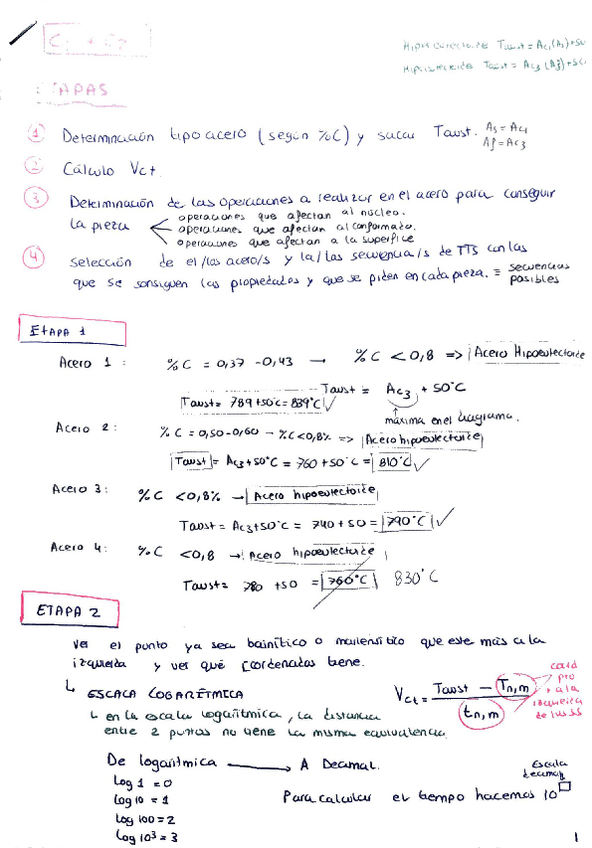 C1 + C2
Hipereutectoide Taust = Ac1 (As) + 50
Hipoeutectoide Taust = Ac3 (Af) + 50
ETAPAS
1 Determinación tipo acero (según %C) y sacar Taust. As = Ac1
Af = Ac3
2 Cálculo Vct.
3 Determinación de las operaciones a realizar en el acero para conseguir
la pieza
operaciones que afectan al núcleo.
operaciones que afectan al conformado.
operaciones que afectan a la superfice
4 Selección de el/los acero/s y la/las secuencia/s de TTS con las
que se consiguen las propiedades y que se piden en cada pieza. = secuencias
posibles
ETAPA 1
Acero 1: %C = 0,37 - 0,43 → %C < 0,8 => Acero Hipoeutectoide
Taust = Ac3 + 50°C
Taust = 789 + 50°C = 839°C ✓
máxima en el diagrama.
Acero 2: %C = 0,50 - 0,60 - %C < 0,8% => Acero hipoeutectoide
Taust = Ac3 + 50°C = 760 + 50°C = 810°C ✓
Acero 3: %C < 0,8% → Acero hipoeutectoide
Taust = Ac3 + 50°C = 740 + 50 = 790°C ✓
Acero 4: %C < 0,8 → Acero hipoeutectoide
Taust = 780 + 50 = 760°C 830°C
ETAPA 2
Ver el punto ya sea bainítico o martensítico que este más a la
izquierda y ver qué coordenadas tiene.
↳ ESCALA LOGARÍTMICA
Vct = Taust - Tn,m / tn,m
coord
pto
+ a la
izquierda
de las SS
↳ en la escala logarítmica, la distancia
entre 2 puntos no tiene la misma equivalencia.
De logarítmica → A Decimal.
Escala
decimal
log 1 = 0
log 10 = 1
log 100 = 2
log 10³ = 3
Para calcular el tiempo hacemos 10□
1